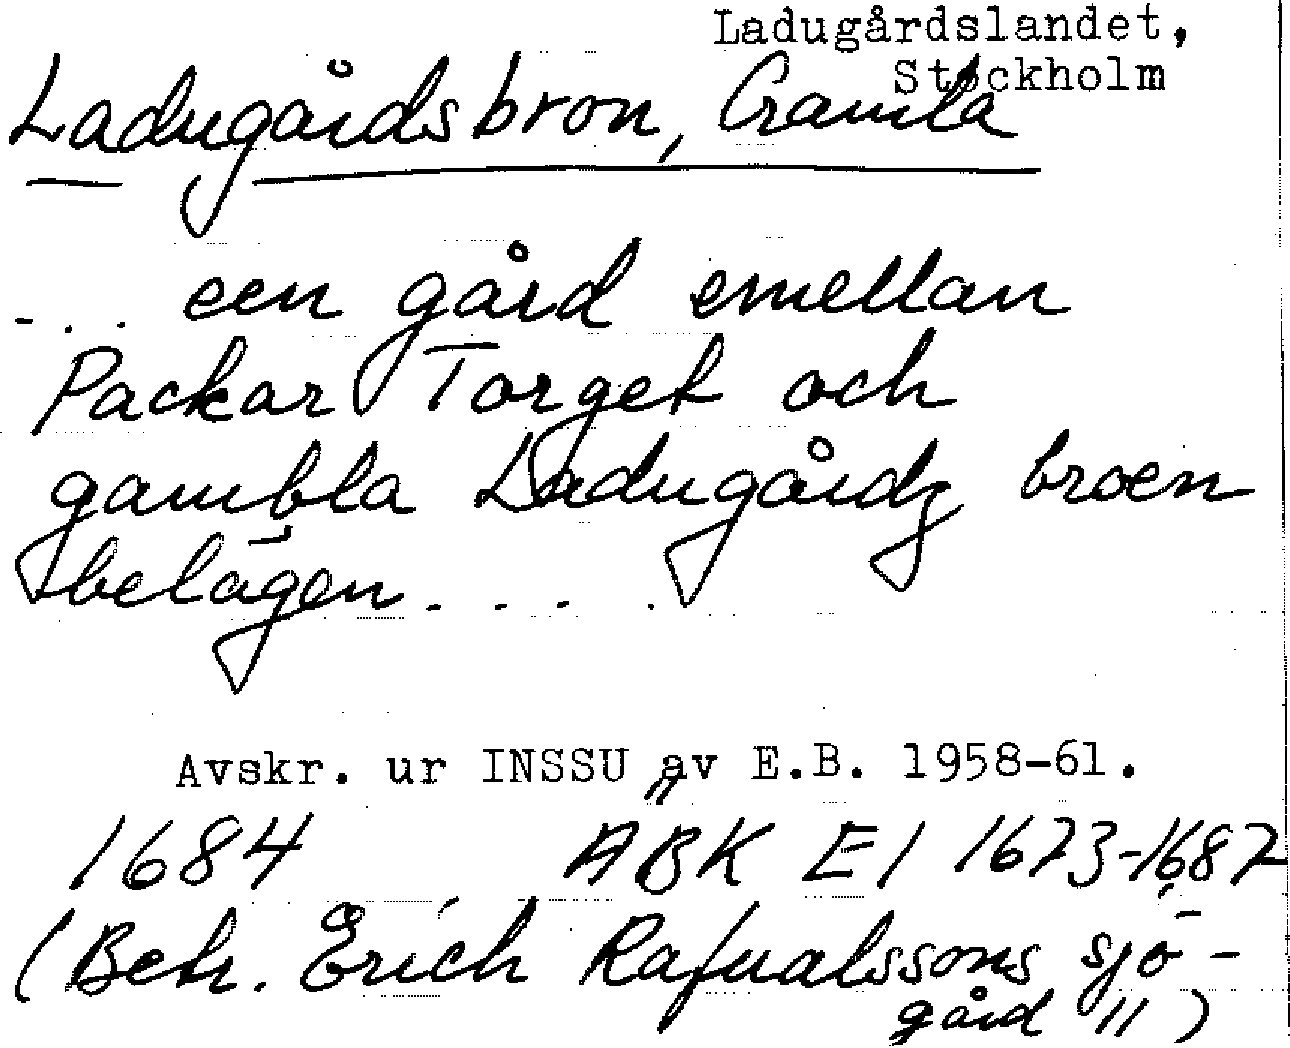 Ladugårdslandet,
Stockholm
Ladugårdsbron, Gamla
... een gård emellan
Packar Torget och
gambla Ladugårdz broen
belägen....
Avskr. ur INSSU av E.B. 1958-61.
1684 ÄBK E1 1673-1687
(Betr. Erich Rafualssons sjö-
gård")